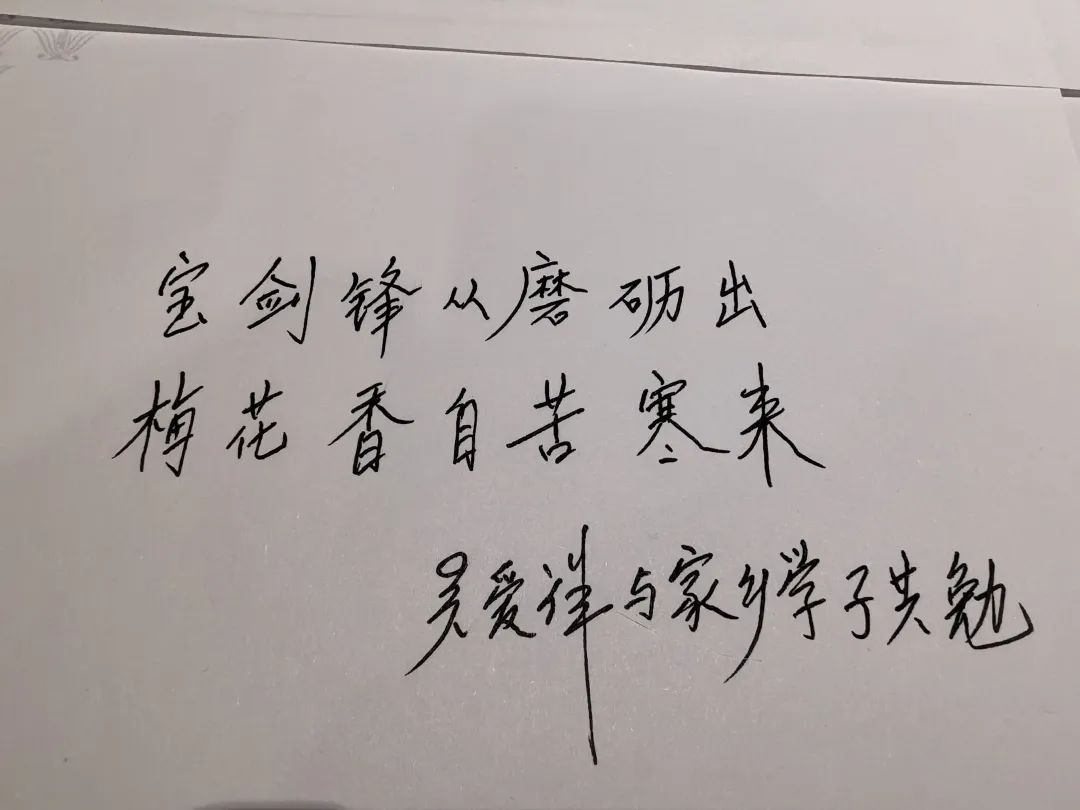 宝剑锋从磨砺出
梅花香自苦寒来
吴爱祥与家乡学子共勉